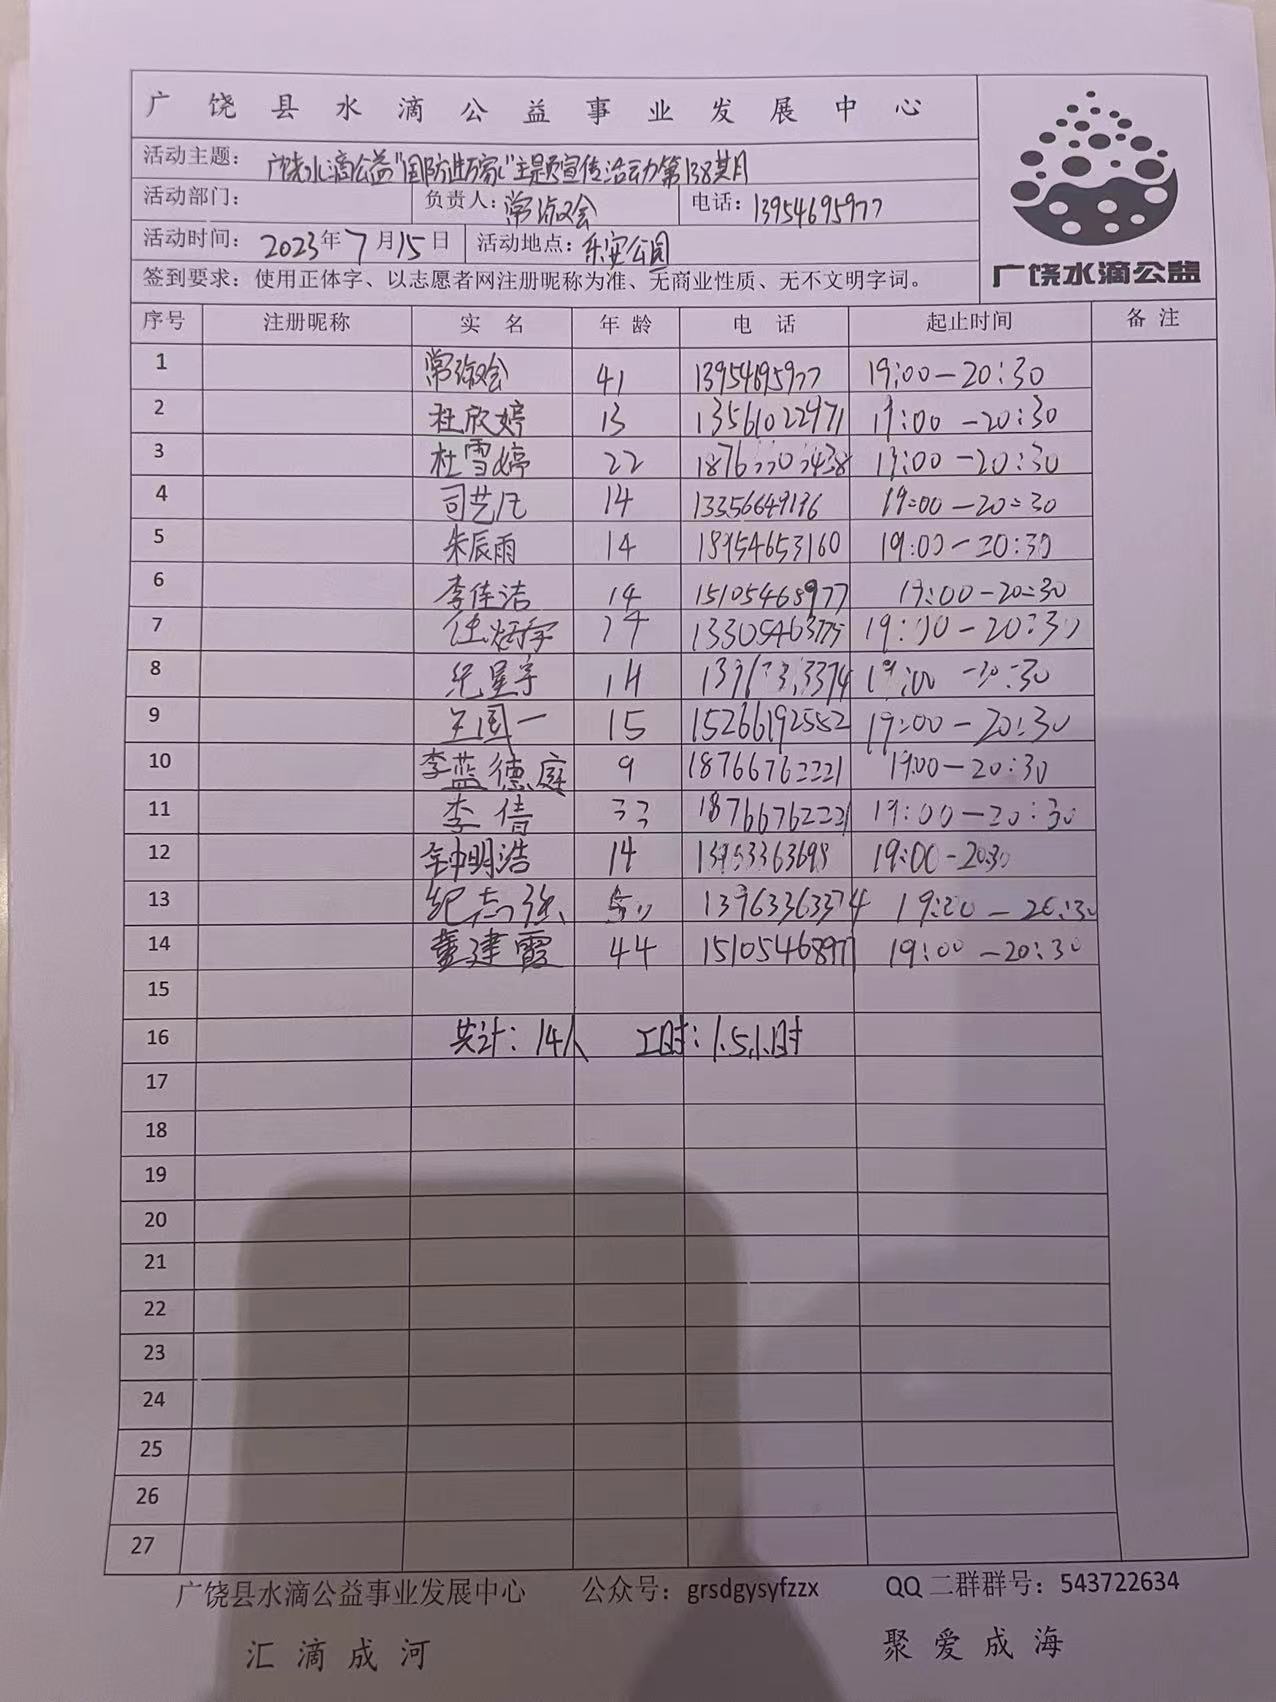 广饶县水滴公益事业发展中心
活动主题： 广饶水滴公益"国防进万家"主题宣传活动第138期
活动部门： 负责人：常淑会 电话：13954695977
活动时间：2023年7月15日 活动地点：乐安公园
签到要求：使用正体字、以志愿者网注册昵称为准、无商业性质、无不文明字词。
广饶水滴公益
序号 注册昵称 实名 年龄 电话 起止时间 备注
1 常淑会 41 13954695977 19:00-20:30
2 杜欣婷 13 13561022971 19:00-20:30
3 杜雪婷 22 19:00-20:30
4 司艺凡 14 13356649136 19:00-20:30
5 朱辰雨 14 18954653160 19:00-20:30
6 李佳洁 14 15105468977 19:00-20:30
7 14 13305463775 19:00-20:30
8 纪星宇 14 19:00-20:30
9 王国一 15 15266192552 19:00-20:30
10 李蓝德庭 9 18766762221 19:00-20:30
11 李倩 33 18766762221 19:00-20:30
12 钟明浩 14 19:00-20:30
13 纪志强 50 13963363374 19:00-20:30
14 董建霞 44 15105468977 19:00-20:30
15
16 共计：14人 工时：1.5小时
17
18
19
20
21
22
23
24
25
26
27
广饶县水滴公益事业发展中心 公众号：grsdgysyfzzx QQ二群群号：543722634
汇滴成河 聚爱成海